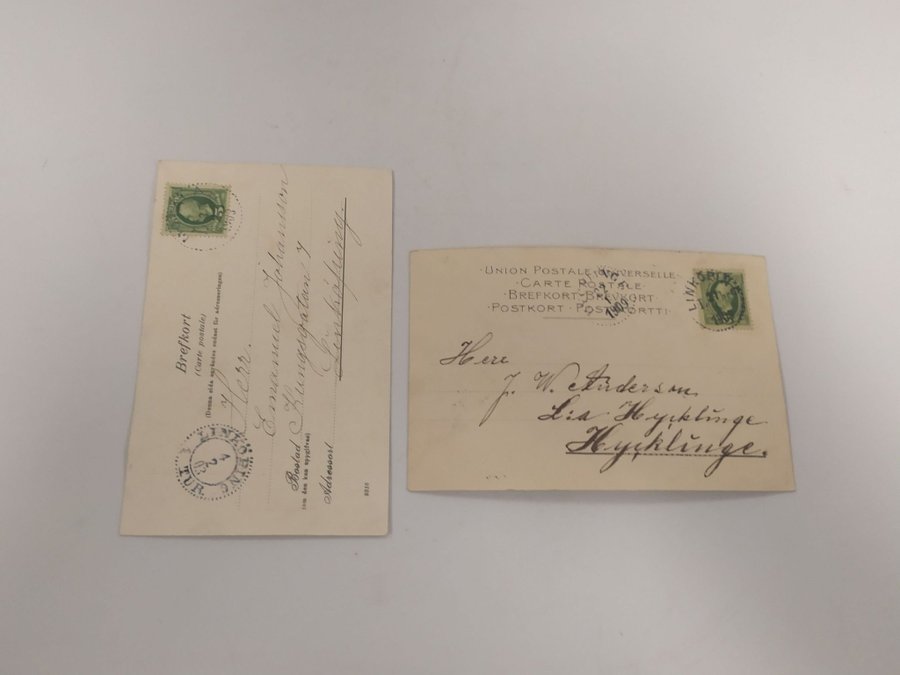 Brefkort
(Carte postale)
(Denna sida endast för adresseringen)
Herr.
Emanuel Johansson
Bostad Kungsgatan 7
(om den kan uppgifvas)
Adressort Linköping.
LINKÖPING
TUR
1
2
5
UNION POSTALE UNIVERSELLE
CARTE POSTALE
BREFKORT-BREVKORT
POSTKORT · POSTIKORTTI
LINKÖPING
1902
Herr
J. W. Anderson
Lia Hycklinge
Hycklinge.